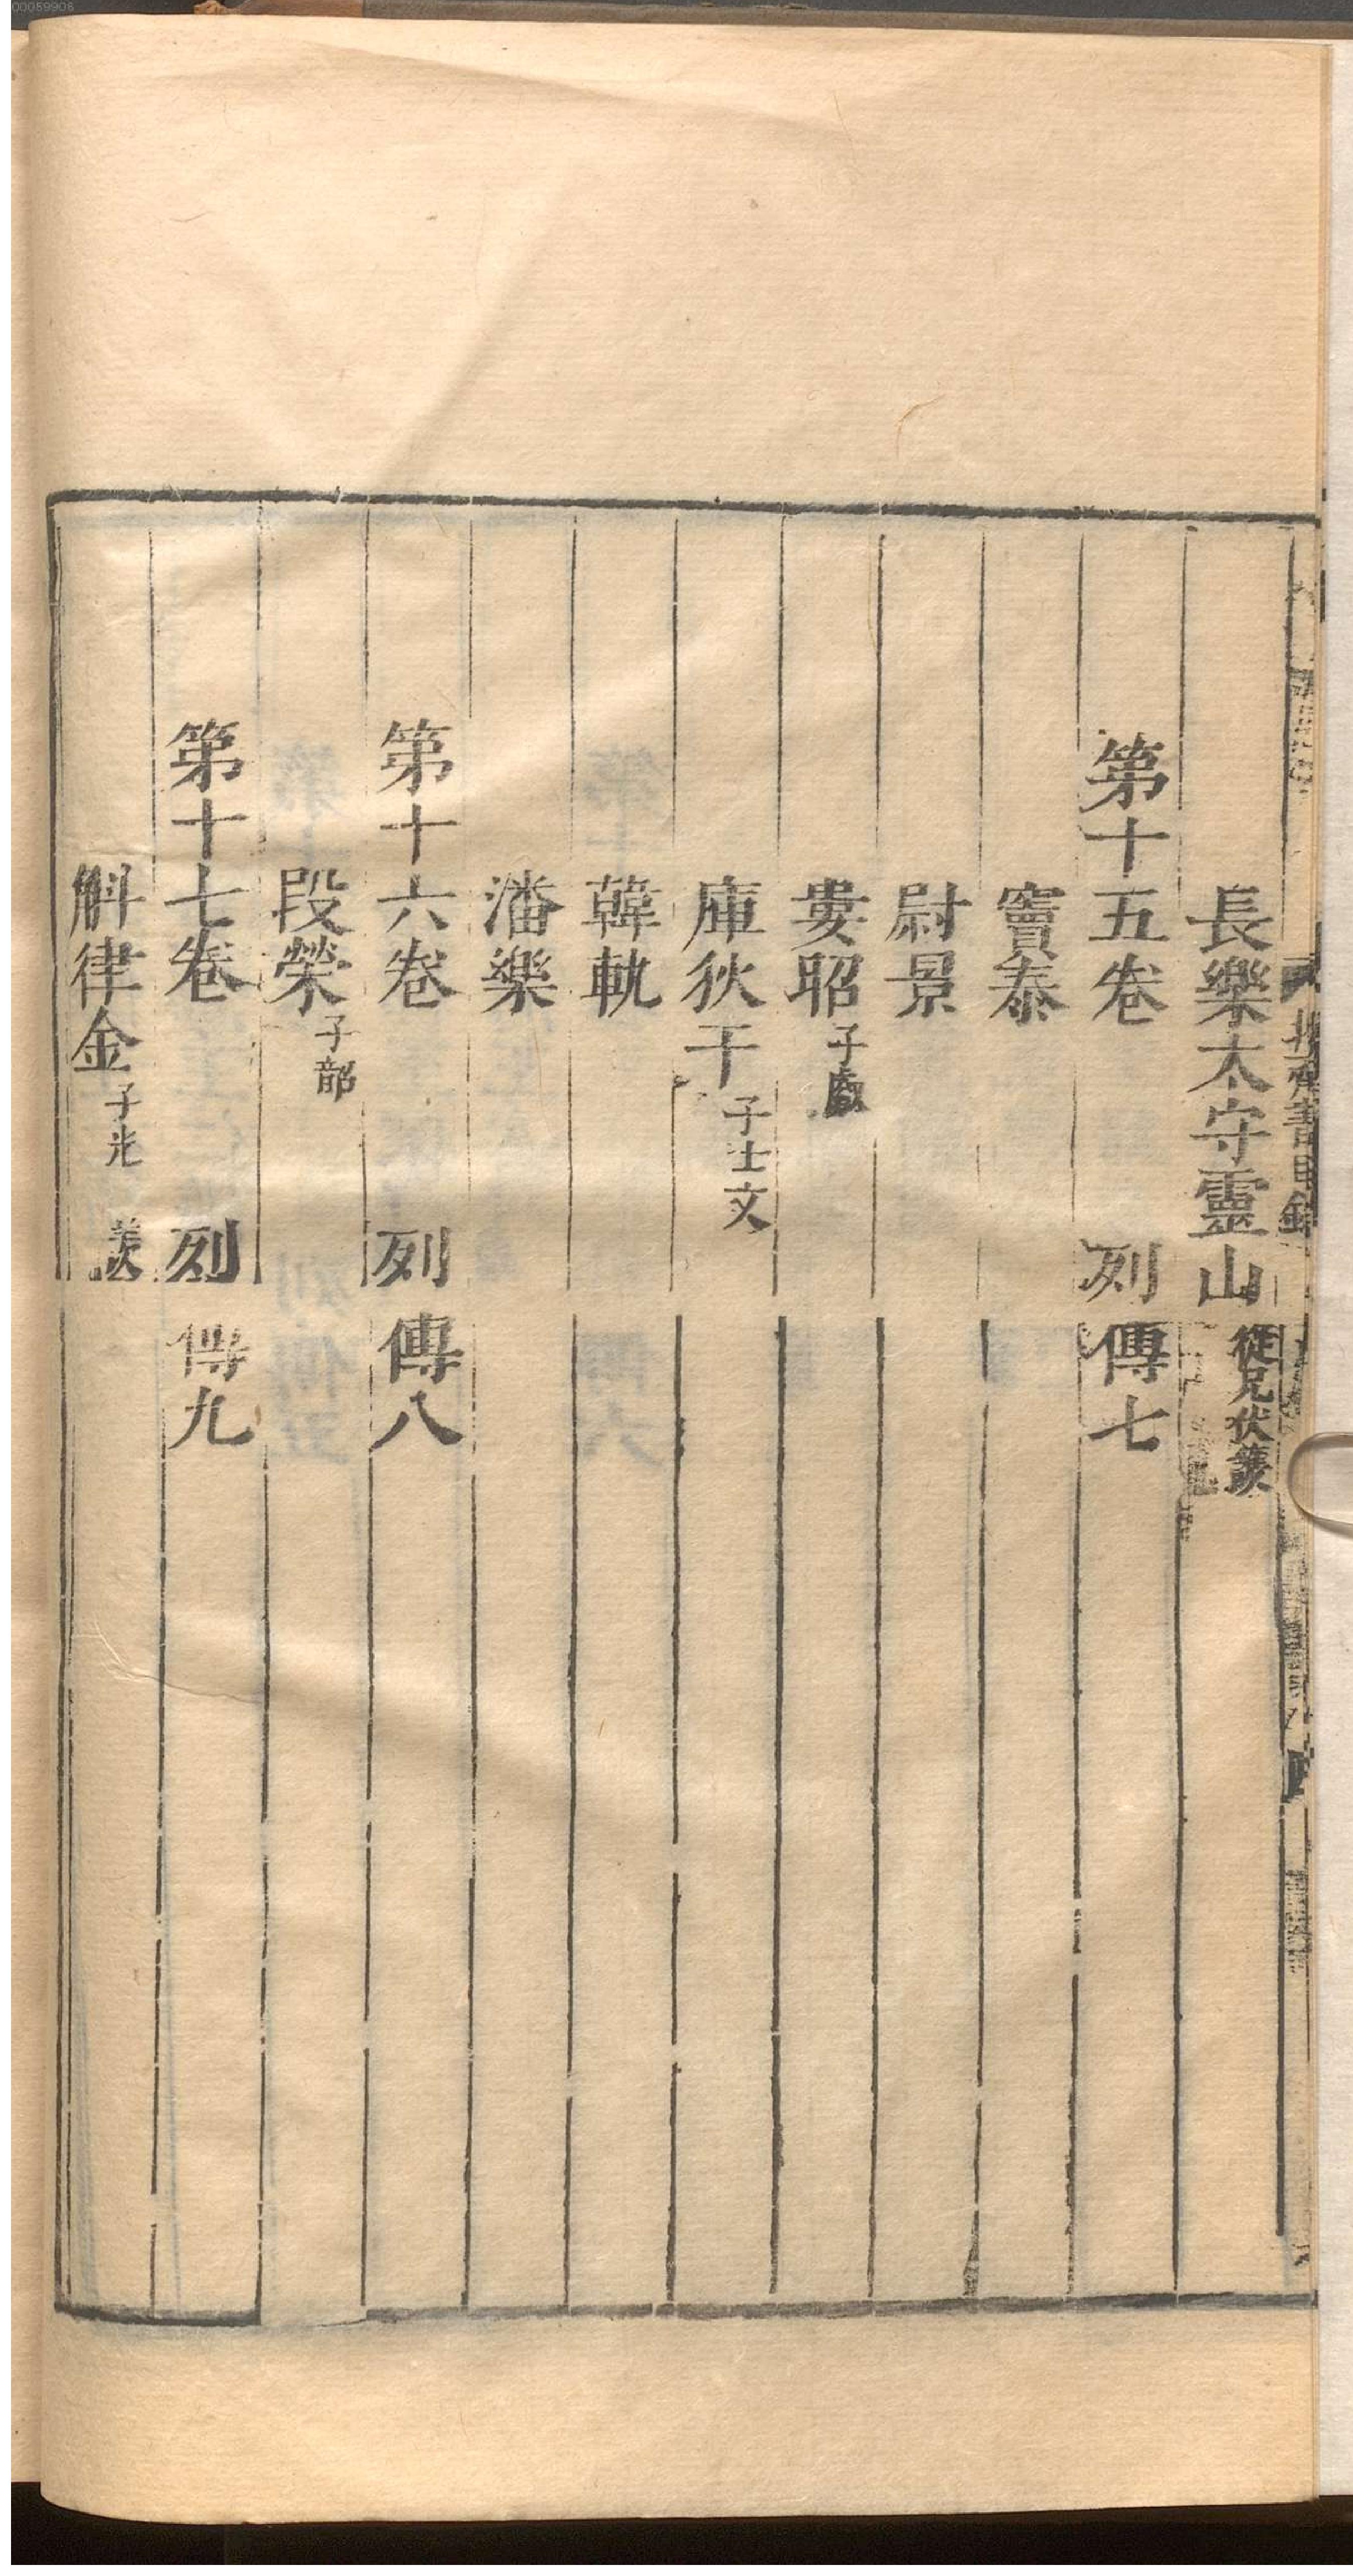 00059906
長樂太守靈山 從兄伏護
第十五卷 列傳七
竇泰
尉景
婁昭 子叡
庫狄干 子士文
韓軌
潘樂
第十六卷 列傳八
段榮 子韶
第十七卷 列傳九
斛律金 子光 羨
北齊書目錄